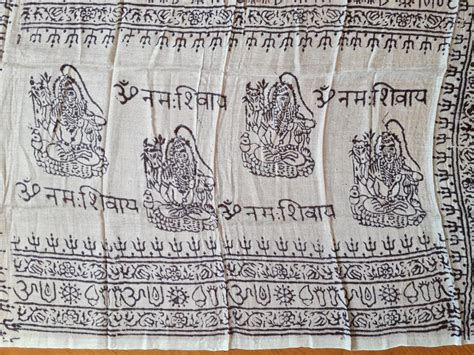 ॐ नमःशिवाय ॐ नमःशिवाय
ॐ नमःशिवाय ॐ नमःशिवाय